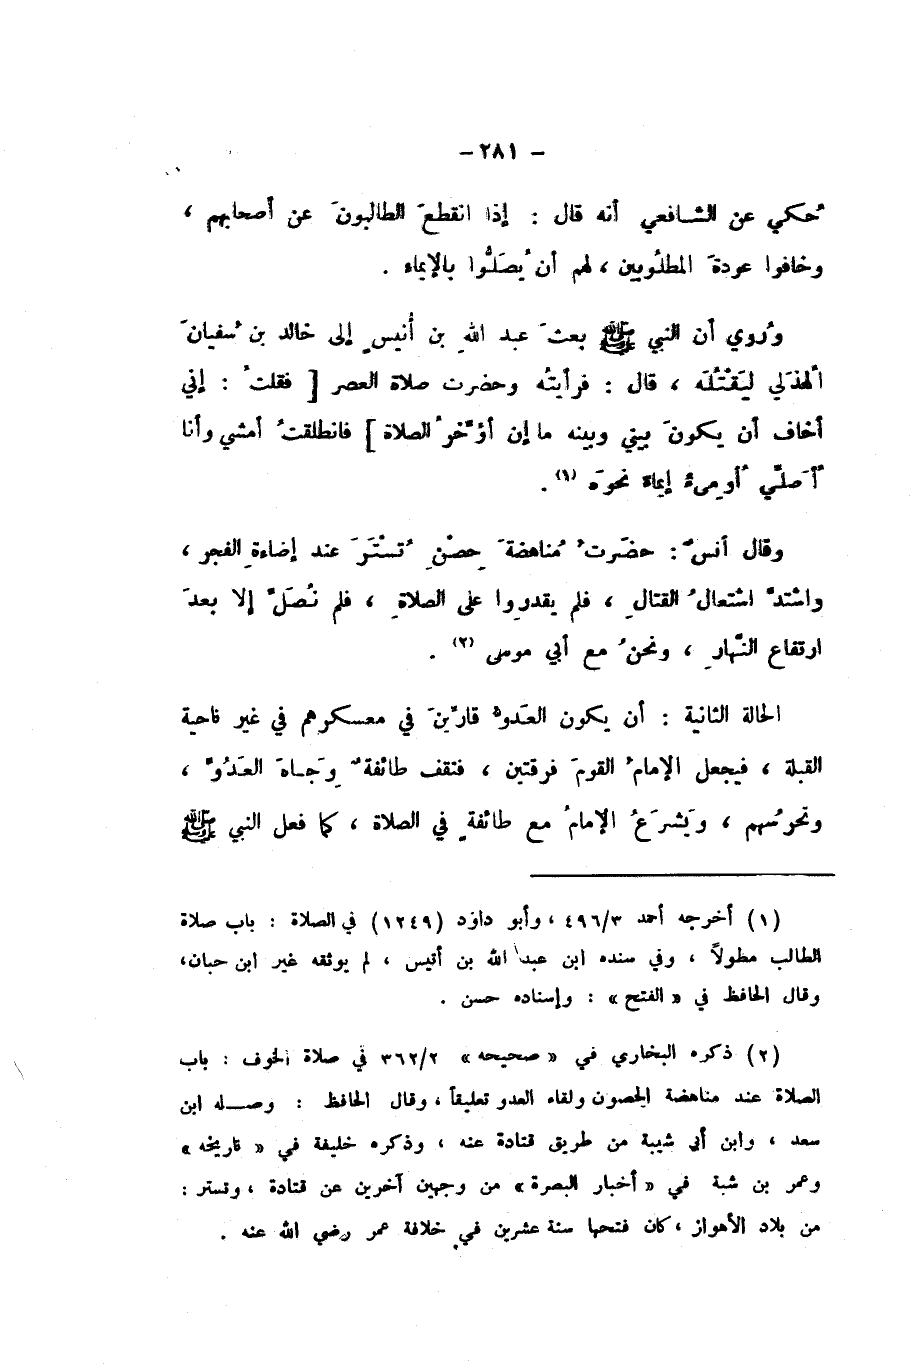 - ٢٨١ -
حُكي عن الشافعي أنه قال : إذا انقطعَ الطالبونَ عن أصحابهم ،
وخافوا عودةَ المطلُوبين ، لهم أن يُصَلُّوا بالإيماء .
ورُوي أن النبي ﷺ بعثَ عبد اللهِ بن أُنيسٍ إلى خالد بن سُفيانَ
الهُذَلي لِيَقْتُلَه ، قال : فرأيتُه وحضرت صلاة العصر [ فقلتُ : إني
أخاف أن يكونَ بيني وبينه ما إن أؤخّرُ الصلاة ] فانطلقتُ أمشي وأنا
أُصَلّي أُومىءُ إيماءً نحوَه (١) .
وقال أنسٌ : حضَرتُ مُناهضةَ حِصْنِ تُسْتَرَ عند إضاءةِ الفجر ،
واشتدَّ اشتعالُ القتالِ ، فلم يقدِروا على الصلاةِ ، فلم نُصَلِّ إلا بعدَ
ارتفاع النَّهارِ ، ونحنُ مع أبي موسى (٢) .
الحالة الثانية : أن يكون العَدوُّ قارِّينَ في معسكرهم في غير ناحية
القبلة ، فيجعل الإمامُ القومَ فرقتين ، فتقف طائفةٌ وِجَـاهَ العَدُوِّ ،
وتحرُسُهم ، ويَشرَعُ الإمامُ مع طائفةٍ في الصلاة ، كما فعل النبي ﷺ
(١) أخرجه أحمد ٤٩٦/٣ ، وأبو داود (١٢٤٩) في الصلاة : باب صلاة
الطالب مطولاً ، وفي سنده ابن عبد الله بن أنيس ، لم يوثقه غير ابن حبان،
وقال الحافظ في « الفتح » : وإسناده حسن .
(٢) ذكره البخاري في « صحيحه » ٣٦٢/٢ في صلاة الخوف : باب
الصلاة عند مناهضة الحصون ولقاء العدو تعليقاً ، وقال الحافظ : وصـــله ابن
سعد ، وابن أبي شيبة من طريق قتادة عنه ، وذكره خليفة في « تاريخه »
وعمر بن شبة في « أخبار البصرة » من وجهين آخرين عن قتادة ، وتستر :
من بلاد الأهواز ، كان فتحها سنة عشرين في خلافة عمر رضي الله عنه .